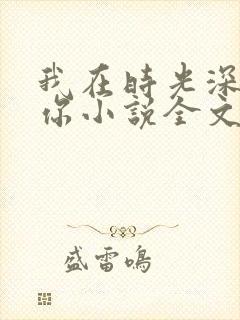 我在時光深
你小説全文
盛雷鳴